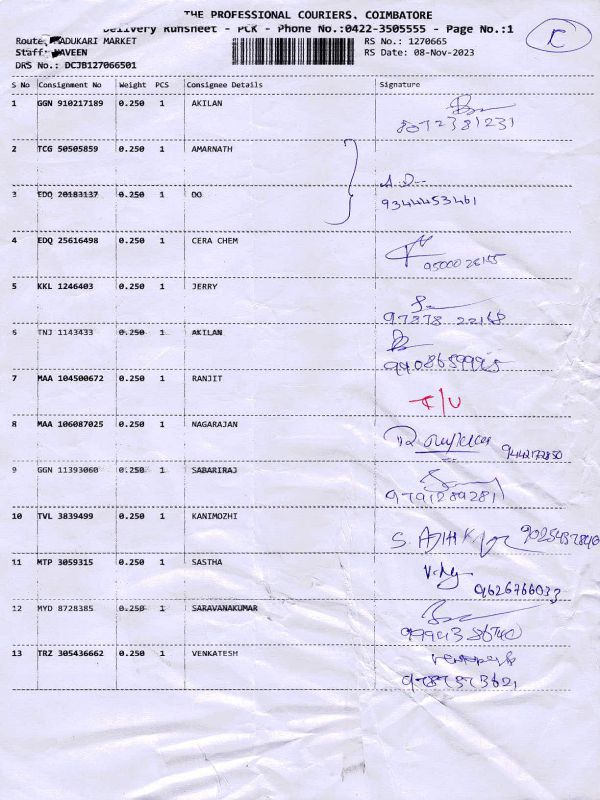 THE PROFESSIONAL COURIERS. COIMBATORE
Delivery Runsheet - PCK - Phone No.:0422-3505555 - Page No.:1
Route: ADUKARI MARKET RS No.: 1270665
Staff: NAVEEN RS Date: 08-Nov-2023
DRS No.: DCJB127066501
S No Consignment No Weight PCS Consignee Details Signature
1 GGN 910217189 0.250 1 AKILAN
8072381231
2 TCG 50505859 0.250 1 AMARNATH
3 EDQ 20183137 0.250 1 DO
9344453461
4 EDQ 25616498 0.250 1 CERA CHEM
5 KKL 1246403 0.250 1 JERRY
97878 22168
6 TNJ 1143433 0.250 1 AKILAN
7 MAA 104500672 0.250 1 RANJIT
I/U
8 MAA 106087025 0.250 1 NAGARAJAN
9442172850
9 GGN 11393060 0.250 1 SABARIRAJ
9791289281
10 TVL 3839499 0.250 1 KANIMOZHI
11 MTP 3059315 0.250 1 SASTHA
9626766033
12 MYD 8728385 0.250 1 SARAVANAKUMAR
13 TRZ 305436662 0.250 1 VENKATESH
9787573621